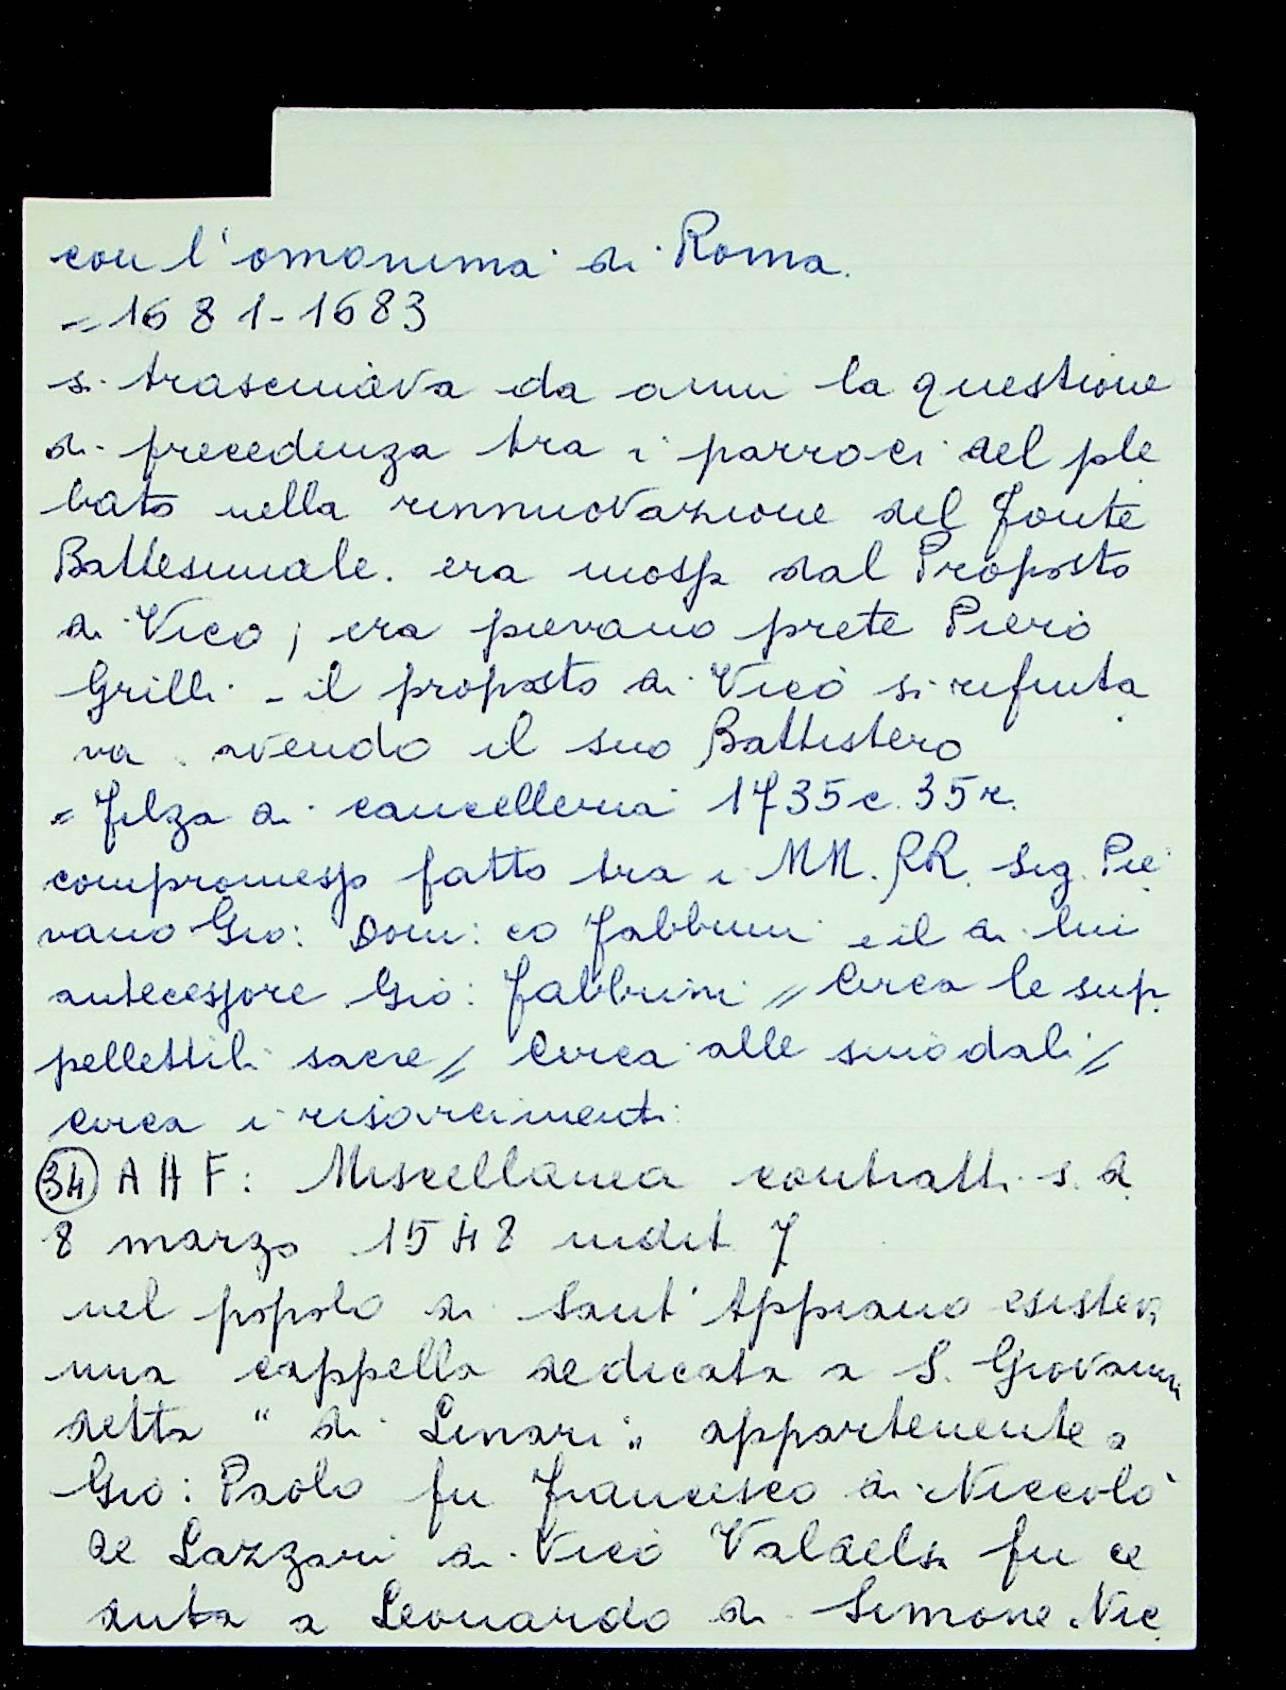 con l'omonima di Roma.
= 1681-1683
si trascinava da anni la questione
di precedenza tra i parroci del ple
bato nella rinnuovazione del Fonte
Battesimale. era mossa dal Proposto
di Vico; era pievano prete Piero
Grilli - il proposto di Vico si rifiuta
va avendo il suo Battistero
= Filza di cancelleria 1735 c. 35 r.
compromesso fatto tra i MM. RR. Sig. Pie
vano Gio: Dom: co Fabbrini e il di lui
antecessore Gio: Fabbrini // Circa le sup
pellettili sacre // Circa alle sinodali //
Circa i risarcimenti
(34) A H F: Miscellanea contratti s. d.
8 marzo 1548 indit 7
nel popolo di Sant'Appiano esisteva
una cappella dedicata a S. Giovanni
detta " di Linari " appartenente a
Gio: Paolo fu Francesco di Niccolò
de Lazzari di Vico Valdelsa fu ce
duta a Leonardo di Simone Nic